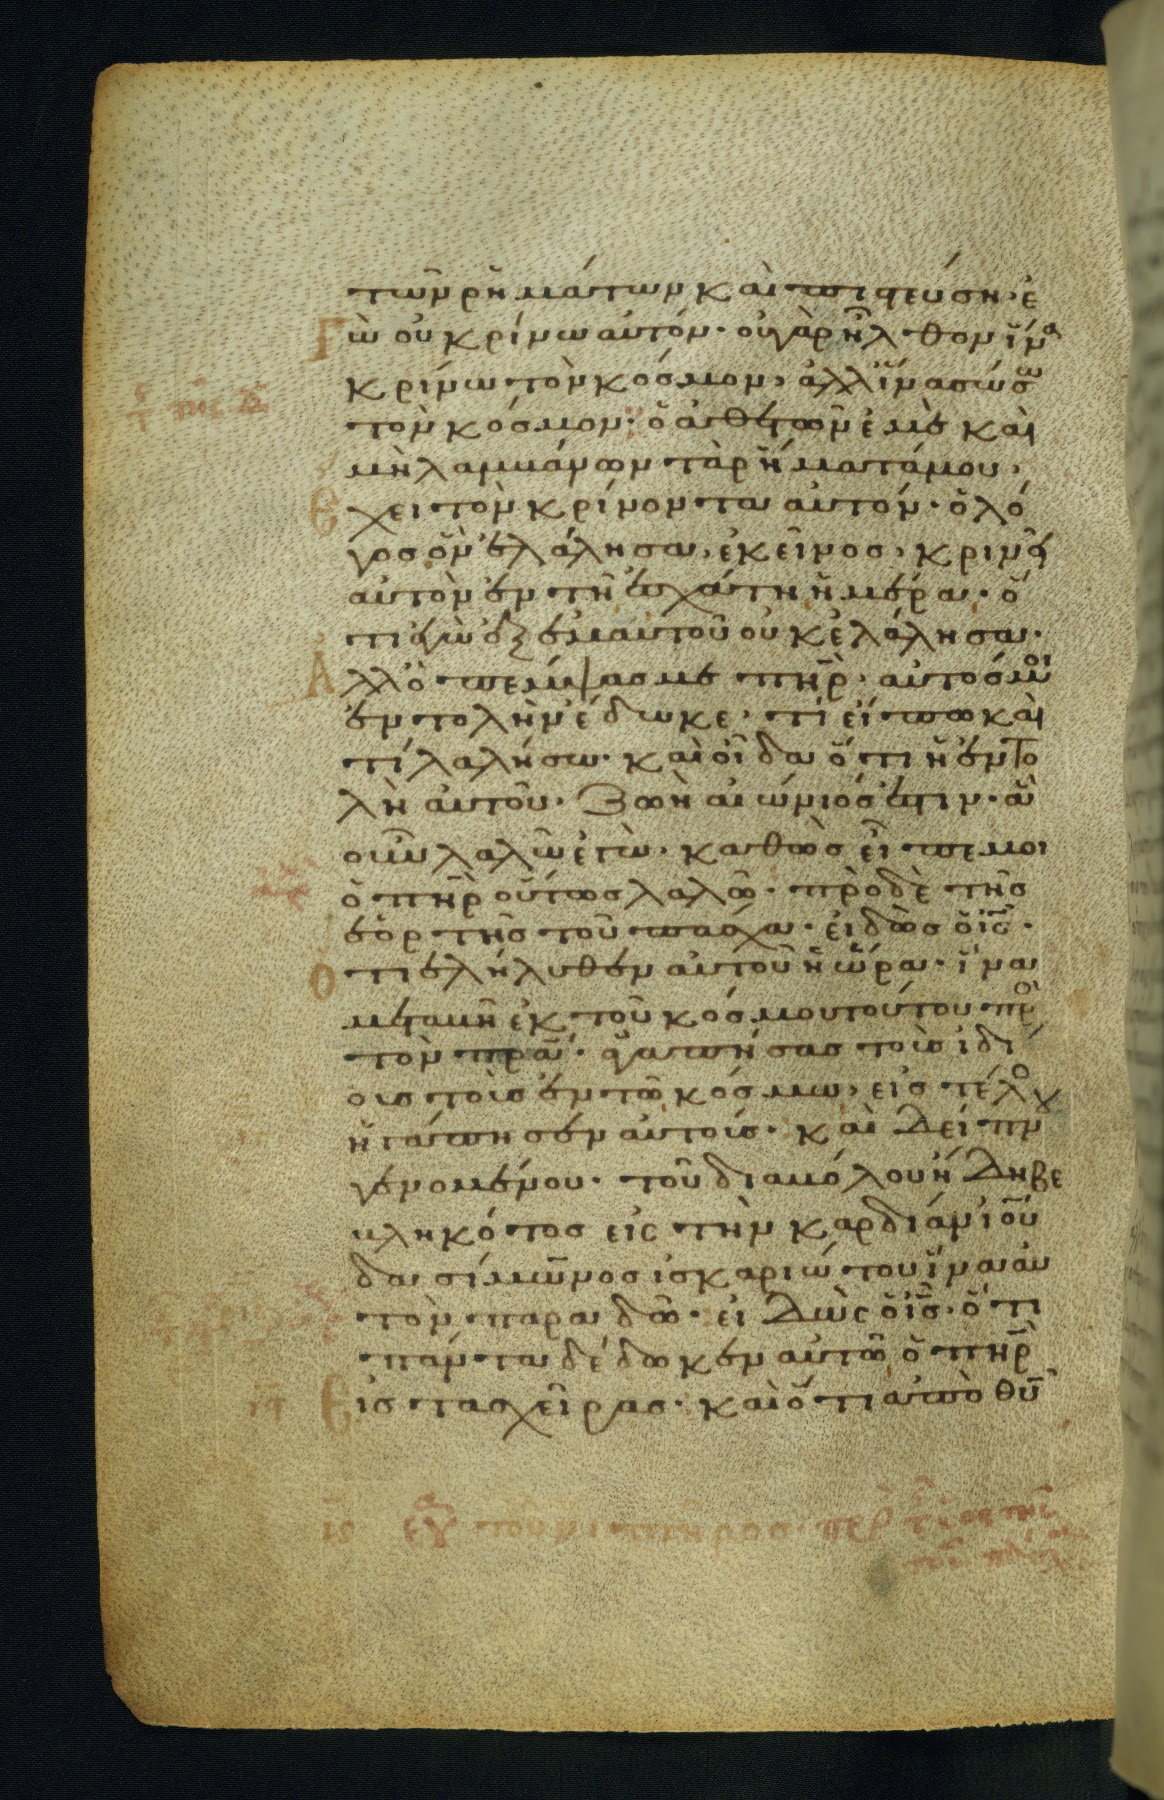 τῶν ῥημάτων καὶ πιστεύση· ἐ
Γὼ οὐ κρίνω αὐτόν· οὐ γὰρ ἦλθον ἵνα
κρίνω τὸν κόσμον, ἀλλ' ἵνα σώσω
τὸν κόσμον· ὁ ἀθετῶν ἐμὲ καὶ
μὴ λαμβάνων τὰ ῥήματά μου,
Ἔχει τὸν κρίνοντα αὐτόν· ὁ λό
γος ὃν ἐλάλησα, ἐκεῖνος, κρινεῖ
αὐτὸν ἐν τῆ ἐσχάτη ἡμέρα· ὅ
τι ἐγὼ ἐξ ἐμαυτοῦ οὐκ ἐλάλησα·
Ἀλλ' ὁ πέμψας με πηρ· αὐτός μοι
ἐντολὴν ἔδωκε, τί εἴπω καὶ
τί λαλήσω· καὶ οἶδα ὅτι ἡ ἐντο
λὴ αὐτοῦ· ζωὴ αἰώνιός ἐστιν· ἃ
οὖν λαλῶ ἐγὼ· καθὼς εἶπε μοι
ὁ πηρ οὕτως λαλῶ· πρὸ δὲ τῆς
ἑορτῆς τοῦ πάσχα· εἰδὼς ὁ ις·
Ὅτι ἐλήλυθεν αὐτοῦ ἡ ὥρα· ἵνα
μεταβῆ ἐκ τοῦ κόσμου τούτου πρὸ
τὸν πρα· ἀγαπήσας τοὺς ἰδί
ους τοὺς ἐν τῶ κόσμω, εἰς τέλος
ἠγάπησεν αὐτούς· καὶ δείπν
γενομένου· τοῦ διαβόλου ἤδη βε
βληκότος εἰς τὴν καρδίαν ἰού
δα σίμωνος ἰσκαριώτου ἵνα αὐ
τὸν παραδῶ· εἰδὼς ὁ ις· ὅτι
πάντα δέδωκεν αὐτῶ ὁ πηρ
Εἰς τὰς χεῖρας· καὶ ὅτι ἀπὸ θυ